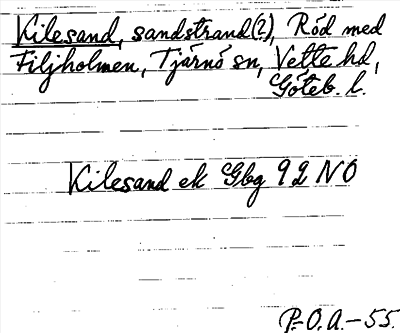 Kilesand, sandstrand(?), Röd med
Filjholmen, Tjärnö sn, Vette hd,
Göteb. l.
Kilesand ek Gbg 92 NO
P.-O.A.-55.